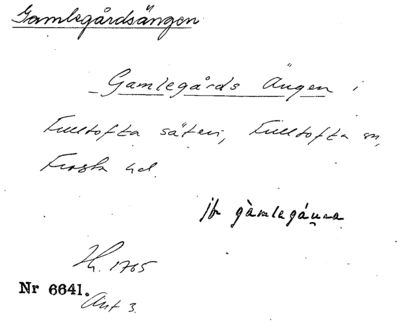 Gamlegårdsängen
Gamlegårds Ängen i
Fulltofta säteri, Fulltofta sn,
Frosta hd.
jfr gàmlegáụna
H. 1765
Nr 6641.
Art 3.